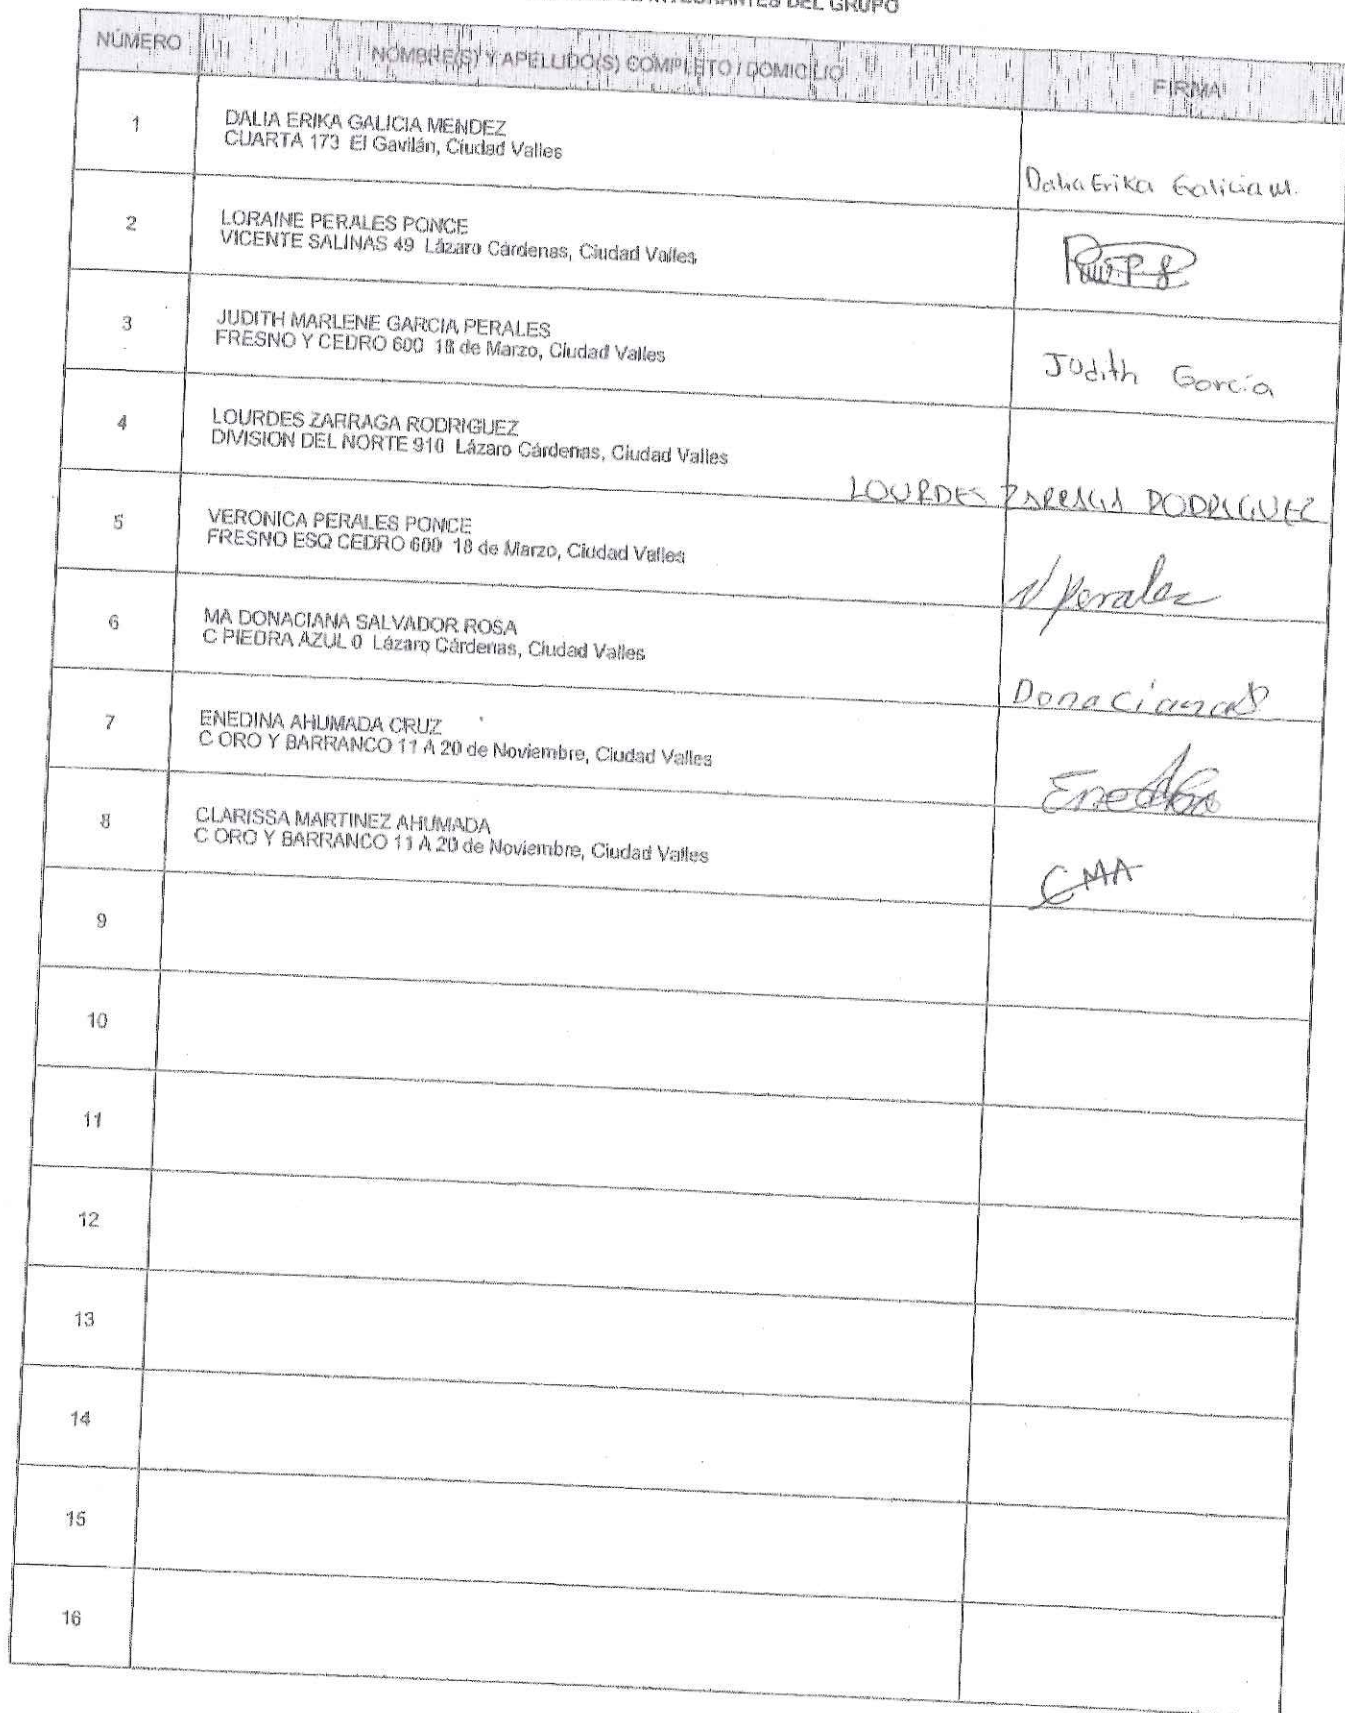 INTEGRANTES DEL GRUPO
NÚMERO NOMBRE(S) Y APELLIDO(S) COMPLETO / DOMICILIO FIRMA
1 DALIA ERIKA GALICIA MENDEZ
CUARTA 173 El Gavilán, Ciudad Valles
Dalia Erika Galicia M.
2 LORAINE PERALES PONCE
VICENTE SALINAS 49 Lázaro Cárdenas, Ciudad Valles
3 JUDITH MARLENE GARCIA PERALES
FRESNO Y CEDRO 600 18 de Marzo, Ciudad Valles
Judith García
4 LOURDES ZARRAGA RODRIGUEZ
DIVISION DEL NORTE 910 Lázaro Cárdenas, Ciudad Valles
LOURDES ZARRAGA RODRIGUEZ
5 VERONICA PERALES PONCE
FRESNO ESQ CEDRO 600 18 de Marzo, Ciudad Valles
V Perales
6 MA DONACIANA SALVADOR ROSA
C PIEDRA AZUL 0 Lázaro Cárdenas, Ciudad Valles
Donaciana S
7 ENEDINA AHUMADA CRUZ
C ORO Y BARRANCO 11 A 20 de Noviembre, Ciudad Valles
8 CLARISSA MARTINEZ AHUMADA
C ORO Y BARRANCO 11 A 20 de Noviembre, Ciudad Valles
CMA
9
10
11
12
13
14
15
16